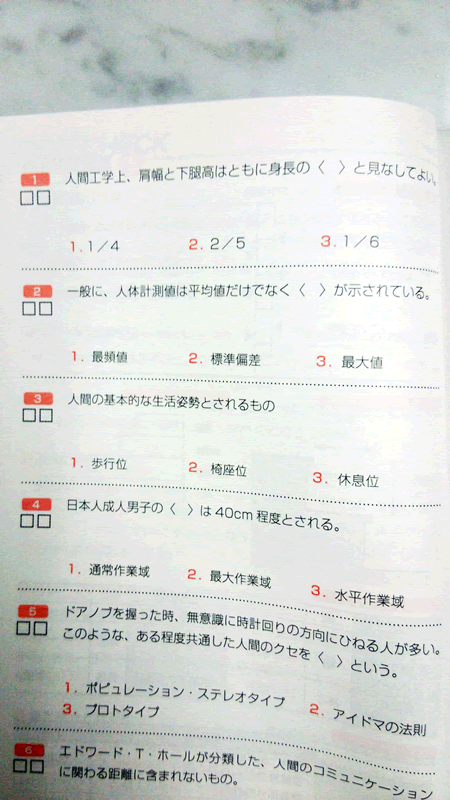 1 人間工学上、肩幅と下腿高はともに身長の〈　〉と見なしてよい。
1. 1／4　2. 2／5　3. 1／6
2 一般に、人体計測値は平均値だけでなく〈　〉が示されている。
1. 最頻値　2. 標準偏差　3. 最大値
3 人間の基本的な生活姿勢とされるもの
1. 歩行位　2. 椅座位　3. 休息位
4 日本人成人男子の〈　〉は40cm程度とされる。
1. 通常作業域　2. 最大作業域　3. 水平作業域
5 ドアノブを握った時、無意識に時計回りの方向にひねる人が多い。
このような、ある程度共通した人間のクセを〈　〉という。
1. ポピュレーション・ステレオタイプ　2. アイドマの法則
3. プロトタイプ
6 エドワード・T・ホールが分類した、人間のコミュニケーション
に関わる距離に含まれないもの。